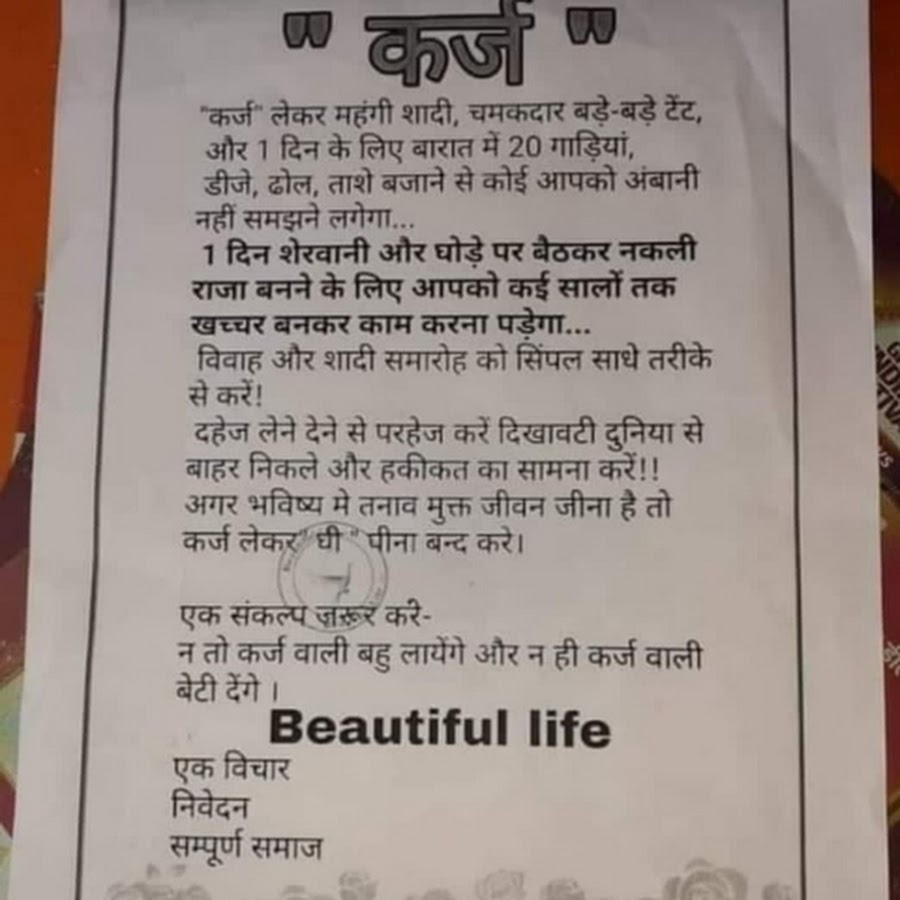 " कर्ज "
"कर्ज" लेकर महंगी शादी, चमकदार बड़े-बड़े टेंट,
और 1 दिन के लिए बारात में 20 गाड़ियां,
डीजे, ढोल, ताशे बजाने से कोई आपको अंबानी
नहीं समझने लगेगा...
1 दिन शेरवानी और घोड़े पर बैठकर नकली
राजा बनने के लिए आपको कई सालों तक
खच्चर बनकर काम करना पड़ेगा...
विवाह और शादी समारोह को सिंपल साधे तरीके
से करें!
दहेज लेने देने से परहेज करें दिखावटी दुनिया से
बाहर निकले और हकीकत का सामना करें!!
अगर भविष्य मे तनाव मुक्त जीवन जीना है तो
कर्ज लेकर" घी " पीना बन्द करे।
एक संकल्प ज़रूर करे-
न तो कर्ज वाली बहु लायेंगे और न ही कर्ज वाली
बेटी देंगे ।
Beautiful life
एक विचार
निवेदन
सम्पूर्ण समाज